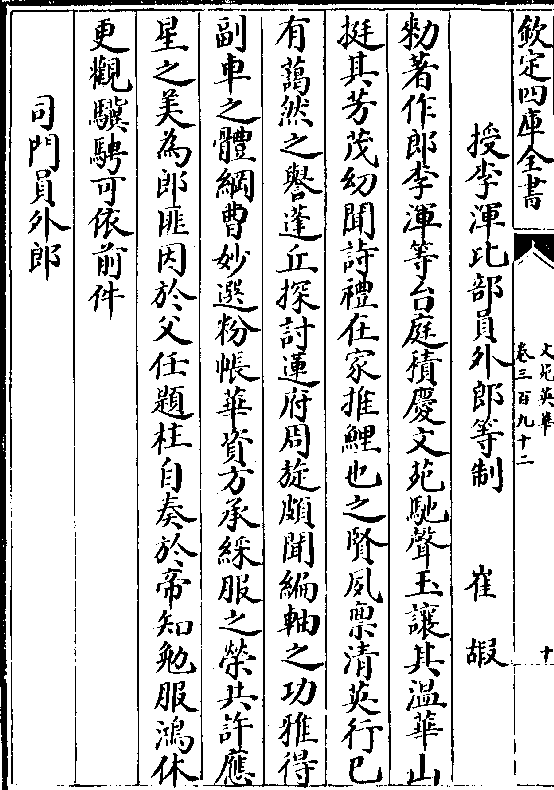 欽定四庫全書
文苑英華
卷三百九十二
十
授李渾比部員外郎等制 崔嘏
勑著作郎李渾等台庭積慶文苑馳聲玉讓其溫華山
挺其芳茂幼聞詩禮在家推鯉也之賢夙禀清英行已
有藹然之譽蓬丘探討蓮府周旋頗聞編軸之功雅得
副車之體綱曹妙選粉帳華資方承綵服之榮共許應
星之美為郎匪因於父任題柱自奏於帝知勉服鴻休
更觀驥騁可依前件
司門員外郎